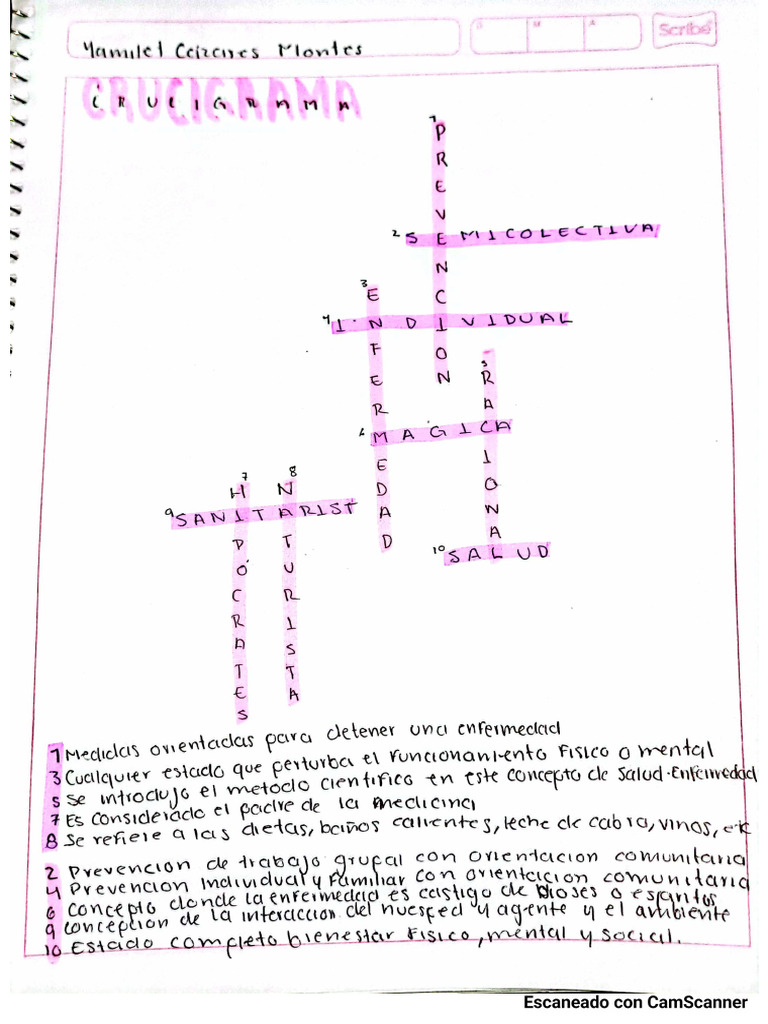 Yamilet Cázares Montes
Scribe
CRUCIGRAMA
1 PREVENCION
2 SEMICOLECTIVA
3 ENFERMEDAD
4 INDIVIDUAL
5 RACIONAL
6 MAGICA
7 HIPÓCRATES
8 NATURISTA
9 SANITARIST
10 SALUD
1 Medidas orientadas para detener una enfermedad
3 Cualquier estado que perturba el funcionamiento fisico o mental
5 Se introdujo el metodo cientifico en este concepto de Salud-Enfermedad
7 Es considerado el padre de la medicina
8 Se refiere a las dietas, baños calientes, leche de cabra, vinos, etc
2 Prevencion de trabajo grupal con orientacion comunitaria
4 Prevencion individual y familiar con orientacion comunitaria
6 Concepto donde la enfermedad es castigo de Dioses o espantos
9 Concepcion de la interaccion del huesped y agente y el ambiente
10 Estado completo bienestar fisico, mental y social.
Escaneado con CamScanner